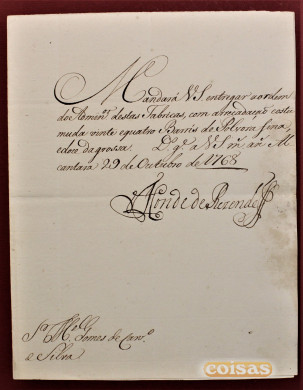 Mandará V S. entregar a ordem
do Admin.or destas Fabricas, com a recadação costu
mada vinte equatro Barris de Polvora fina
edous da grossa. D.s g.e a V S m.s an.s Al
cantara 29 de Outubro de 1768
Conde de Rezende
S.r
Gomes de Carv.o
e Selva
coisas